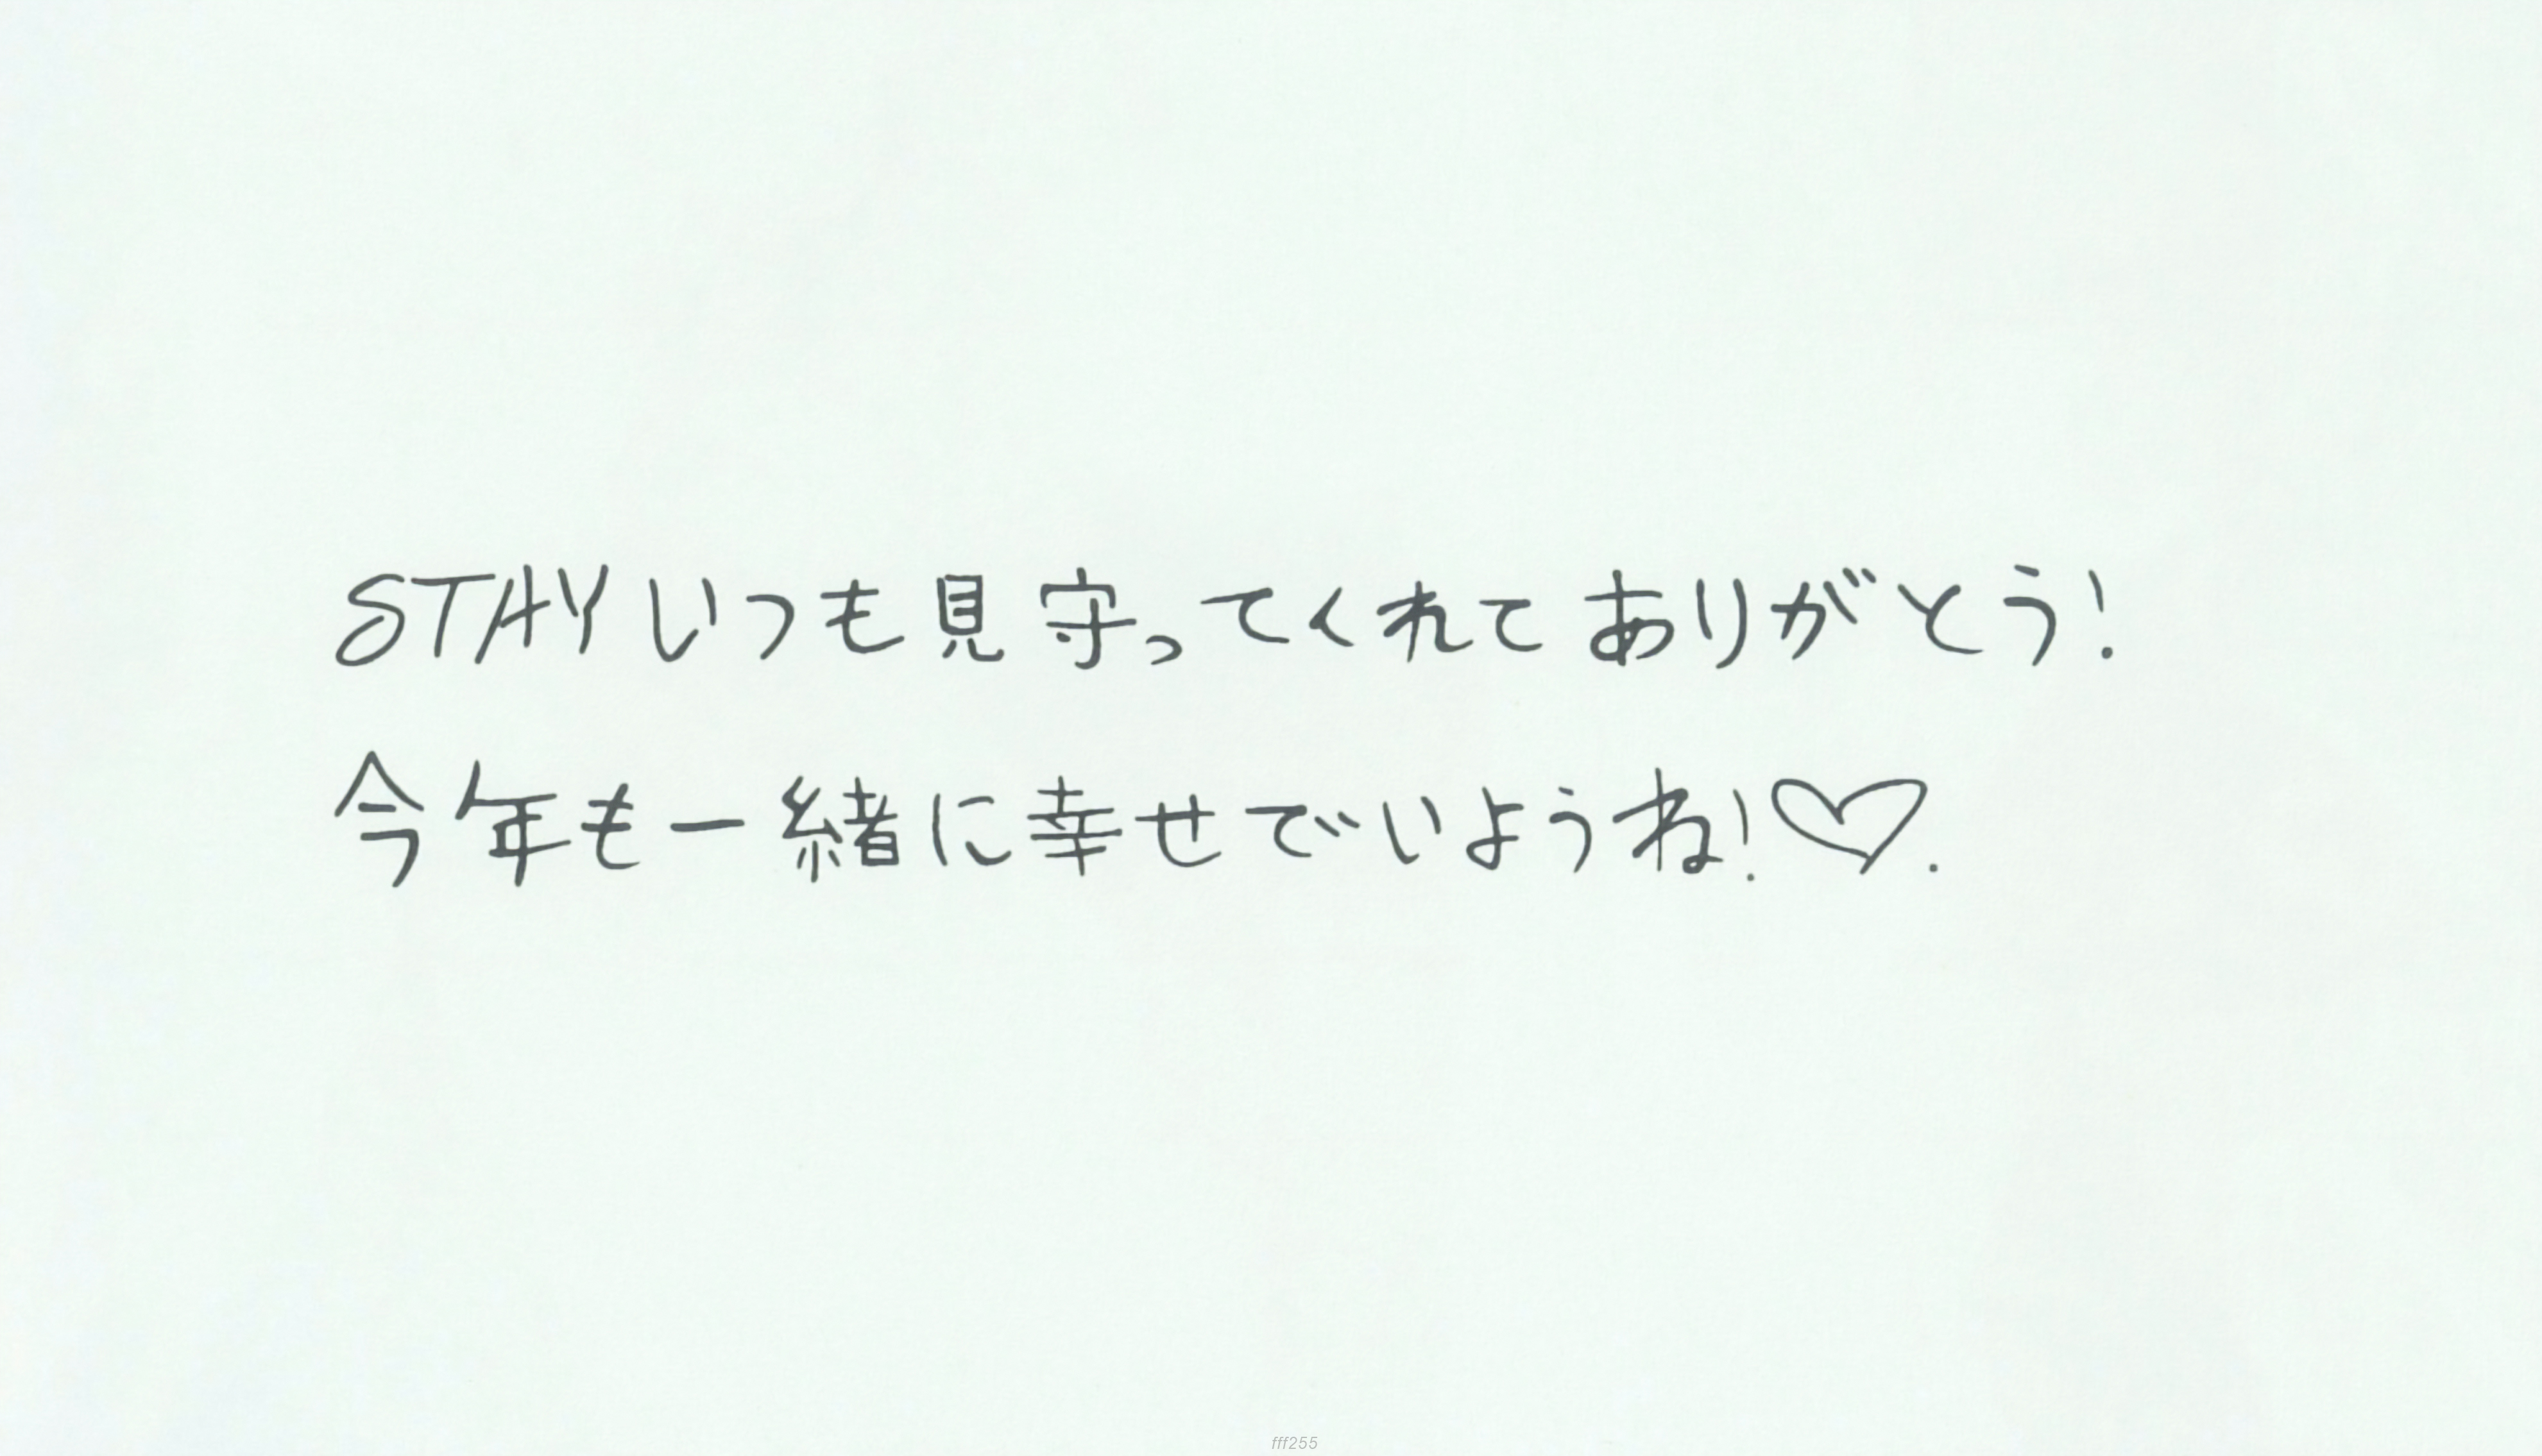 STAY いつも見守ってくれてありがとう!
今年も一緒に幸せでいようね!♡.
fff255